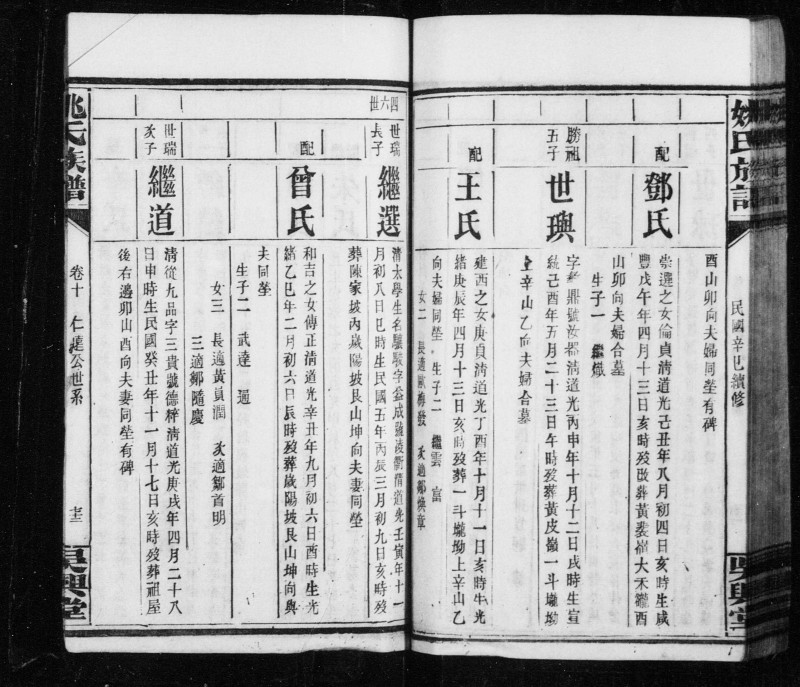 姚氏族譜
民國辛巳續修
吳興堂
酉山卯向夫婦同塋有碑
配
鄧氏
崇選之女倫貞清道光己丑年八月初四日亥時生咸
豐戊午年四月十三日亥時歿改葬黃裴嶺大禾𡋾酉
山卯向夫婦合墓
生子一 繼熾
勝祖
五子
世興
鼎號汝器清道光丙申年十月十二日戌時生宣
統己酉年五月二十三日午時歿葬黃皮嶺一斗壠坳
上辛山乙向夫婦合墓
配
王氏
建西之女庚貞清道光丁酉年十月十一日亥時生光
緒庚辰年四月十三日亥時歿葬一斗壠坳上辛山乙
向夫婦同塋 生子二 繼雲 富
女二 長適歐梅發 次適鄭煥章
四六世
世瑞
長子
繼選
清太學生名驥字益成號凌衢清道光壬寅年十一
月初八日巳時生民國五年丙辰三月初九日亥時歿
葬陳家坡內歲陽坡艮山坤向夫妻同塋
配
曾氏
和吉之女傳正清道光辛丑年九月初六日酉時生光
緒乙巳年二月初六日辰時歿葬歲陽坡艮山坤向與
夫同塋
生子二 武達 適
女三 長適黃貞潤 次適鄒首明
三適鄒隨慶
世瑞
次子
繼道
清從九品字三貴號德粹清道光庚戌年四月二十八
日申時生民國癸丑年十一月十七日亥時歿葬祖屋
後右邊卯山酉向夫妻同塋有碑
姚氏族譜
卷十 仁達公世系
吳興堂